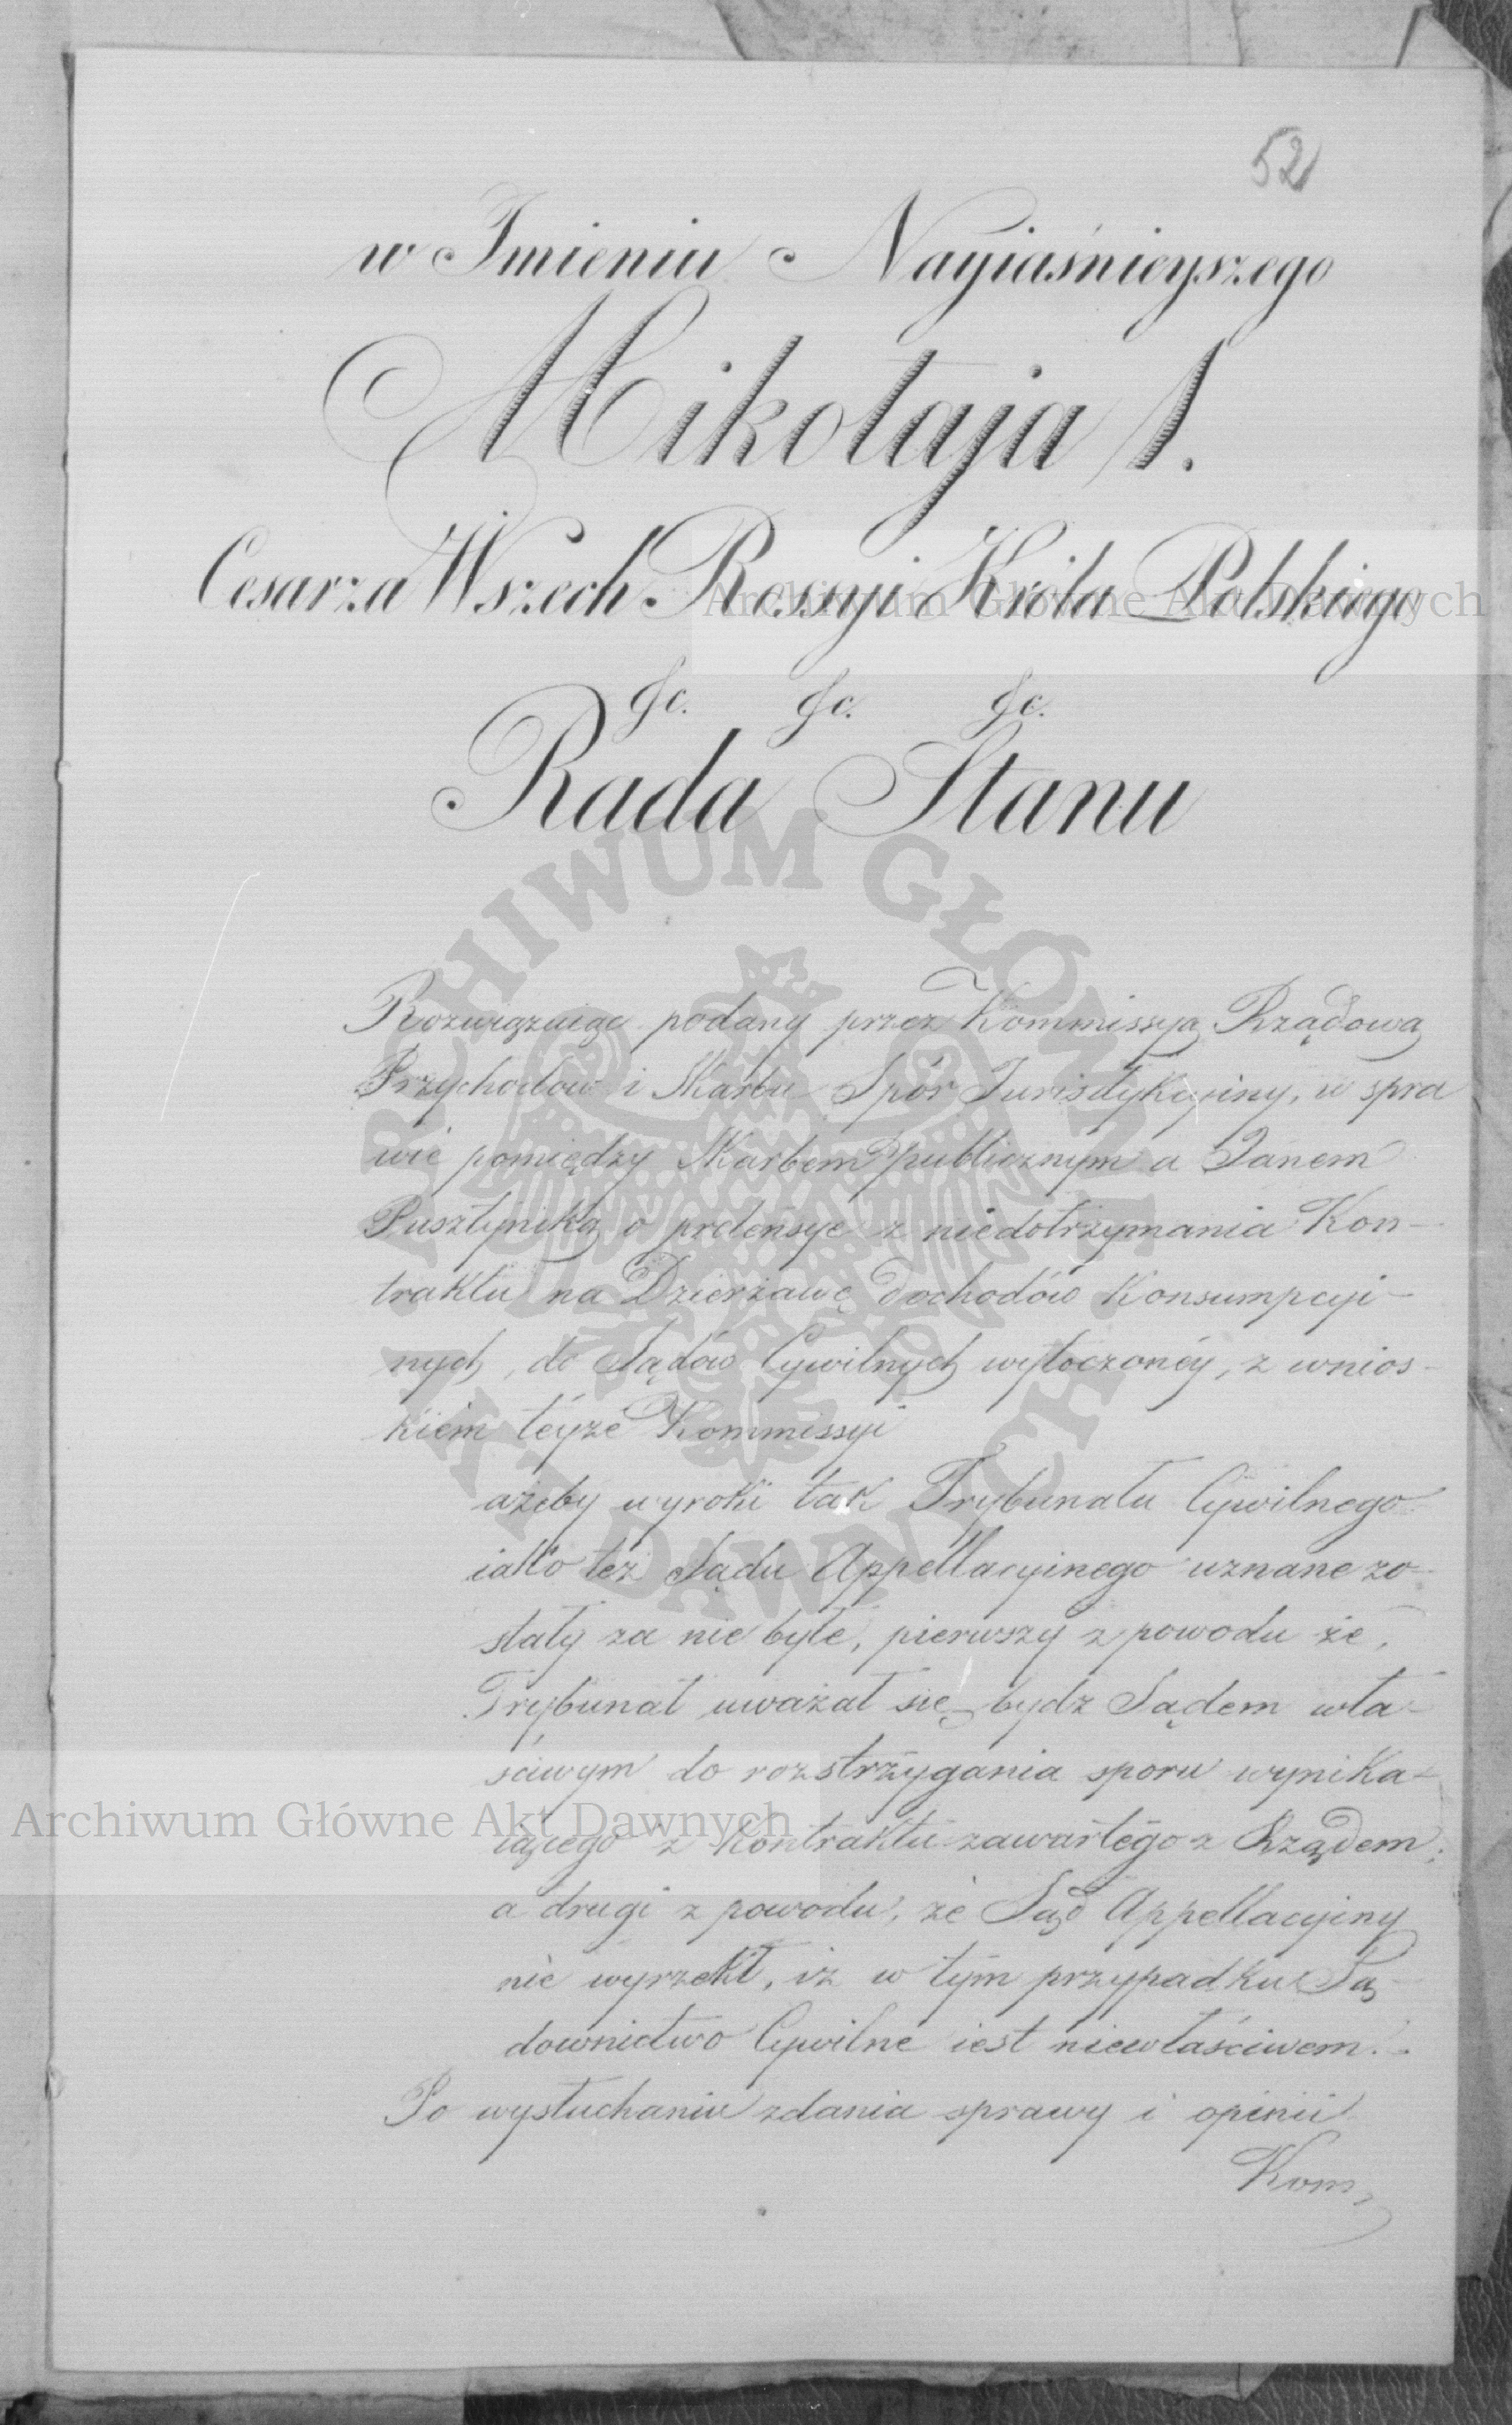 52
w Imieniu Nayiaśnieyszego
Mikołaja I.
Cesarza Wszech Rossyi Króla Polskiego
&c. &c. &c.
Rada Stanu
Rozwiązuiąc podany przez Kommissyą Rządową
Przychodów i Skarbu Spór Jurisdykcyiny, w spra
wie pomiędzy Skarbem publicznym a Janem
Pusztynika o pretensye z niedotrzymania Kon-
traktu na Dzierżawę dochodów Konsumpcyi-
nych, do Sądów Cywilnych wytoczonéy, z wnios-
kiem téyże Kommissyi
ażeby wyroki tak Trybunału Cywilnego
iako też Sądu Appellacyinego uznane zo-
stały za nie byłe, pierwszy z powodu że,
Trybunał uważał się bydz Sądem wła-
ściwym do rozstrzygania sporu wynika-
iącego z kontraktu zawartego z Rządem;
a drugi z powodu, że Sąd Appellacyiny
nie wyrzekł, iż w tym przypadku Są-
downictwo Cywilne iest niewłaściwem.
Po wysłuchaniu zdania sprawy i opinii
Kom
Archiwum Główne Akt Dawnych
Archiwum Główne Akt Dawnych
ARCHIWUM GŁÓWNE AKT DAWNYCH